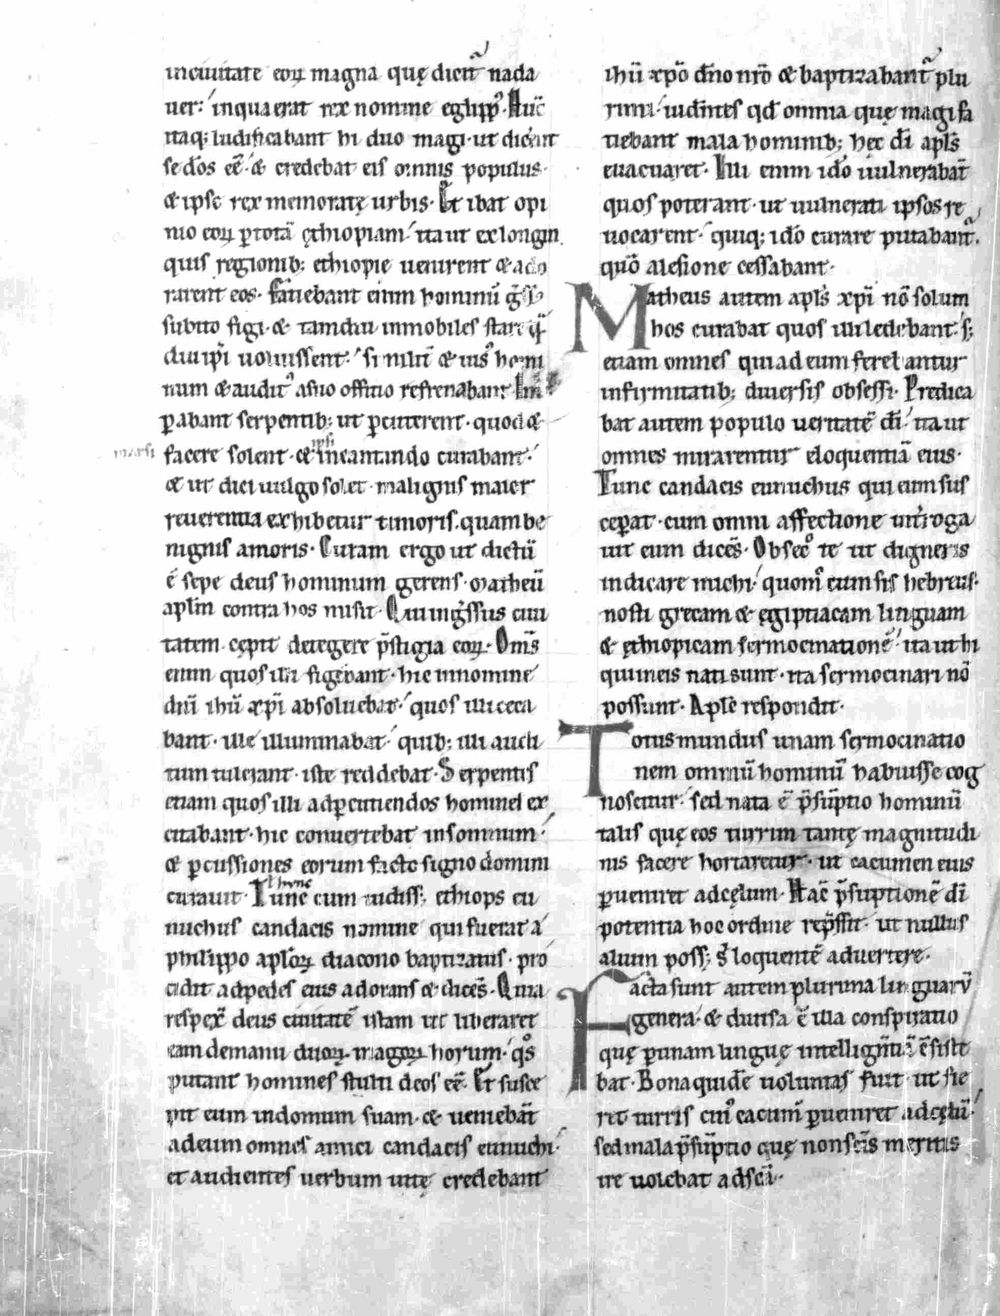 inciuitate eoꝝ magna quę dicit̃ nada
uer· inqua erat rex nomine eglipp᷒· Hũc
itaq; ludificabant hi duo magi· ut dicerent
se dos eẽ· & credebat eis omnis populus·
& ipse rex memoratę urbis· Et ibat opi
nio eoꝝ ꝑ totã ęthiopiam· ita ut ex longin
quis regionib; ethiopie uenirent & ado
rarent eos· faciebant enim hominũ
subito figi· & tamdiu immobiles stare
diu ipi uoluissent· similit̃ & uis᷒ homi
num & audit᷒ asuo offitio refrenabant·
ꝑabant serpentib; ut ꝑcuterent· quod &
marsi facere solent· & ipsi incantando curabant·
& ut dici uulgo solet· malignis maior
reuerentia exhibetur timoris· quam be
nignis amoris· Curam ergo ut dictũ
ẽ sepe deus hominum gerens· matheũ
aplm contra hos misit· Qui ingssus ciui
tatem· cepit detegere p̃stigia eoꝝ· Om̃s
enim quos illi figebant· hic innomine
dnĩ ihũ xpĩ absoluebat· quos illi ceca
bant· ille illuminabat· quib; illi audi
tum tulerant· iste reddebat· Serpentes
etiam quos illi adꝑcutiendos homines ex
citabant· hic conuertebat insomnum·
& ꝑcussiones eorum facto signo domini
curauit· Tunc l hunc cum uidiss; ethiops eu
nuchus candacis nomine qui fuerat á
philippo aploꝝ diacono baptizatus· pro
cidit adpedes eius adorans & dicẽs· Quia
respex̃ deus ciuitatẽ istam ut liberaret
eam demanu duoꝝ· magoꝝ horum· q͛s
putant homines stulti deos eẽ· Et susce
pit eum indomum suam· & ueniebãt
adeum omnes amici candacis eunuchi·
et audientes uerbum uitę credebant
ihũ xpõ dño nr̃o & baptizabant̃ plu
rimi· uidẽtes qđ omnia quę magi fa
tiebant mala hominib; hec dĩ apls̃
euacuaret· Illi enim idõ uulnerabãt
quos poterant· ut uulnerati ipsos re
uocarent· quiq; idõ curare putabant̃·
quõ alesione cessabant·
Matheus autem apls̃ xpĩ nõ solum
hos curabat quos illi ledebant· s;
etiam omnes qui ad eum ferebantur
infirmitatib; diuersis obsessi· Predica
bat autem populo ueritatẽ dĩ· ita ut
omnes mirarentur eloquentiã eius·
Tunc candacis eunuchus qui eum sus
ceꝑat· cum omni affectione int̃roga
uit eum dicẽs· Obsec͛ te ut digneris
indicare michi· quom͛ cum sis hebreus·
nosti grecam & egiptiacam linguam
& ęthiopicam sermocinationẽ· ita ut hi
qui ineis nati sunt· ita sermocinari nõ
possunt· Apls̃ respondit·
Totus mundus unam sermocinatio
nem omniũ hominũ habuisse cog
noscitur· sed nata ẽ p̃sũptio hominũ
talis quę eos turrim tantę magnitudi
nis facere hortaretur· ut cacumen eius
ꝑueniret adcęlum· Hãc p̃suptionẽ dĩ
potentia hoc ordine rep̃ssit· ut nullus
alium poss; s̃ loquentẽ aduertere·
Facta sunt autem plurima linguaꝝ
genera· & diuisa ẽ illa conspiratio
quę ꝑ unam linguę intelligñtiã cẽsiste
bat· Bona quidẽ uoluntas fuit· ut fie
ret turris cui᷒ cacum̃ ꝑueniret adcęlũ·
sed mala p̃sũptio quę non scĩs meritis
ire uolebat adscã·